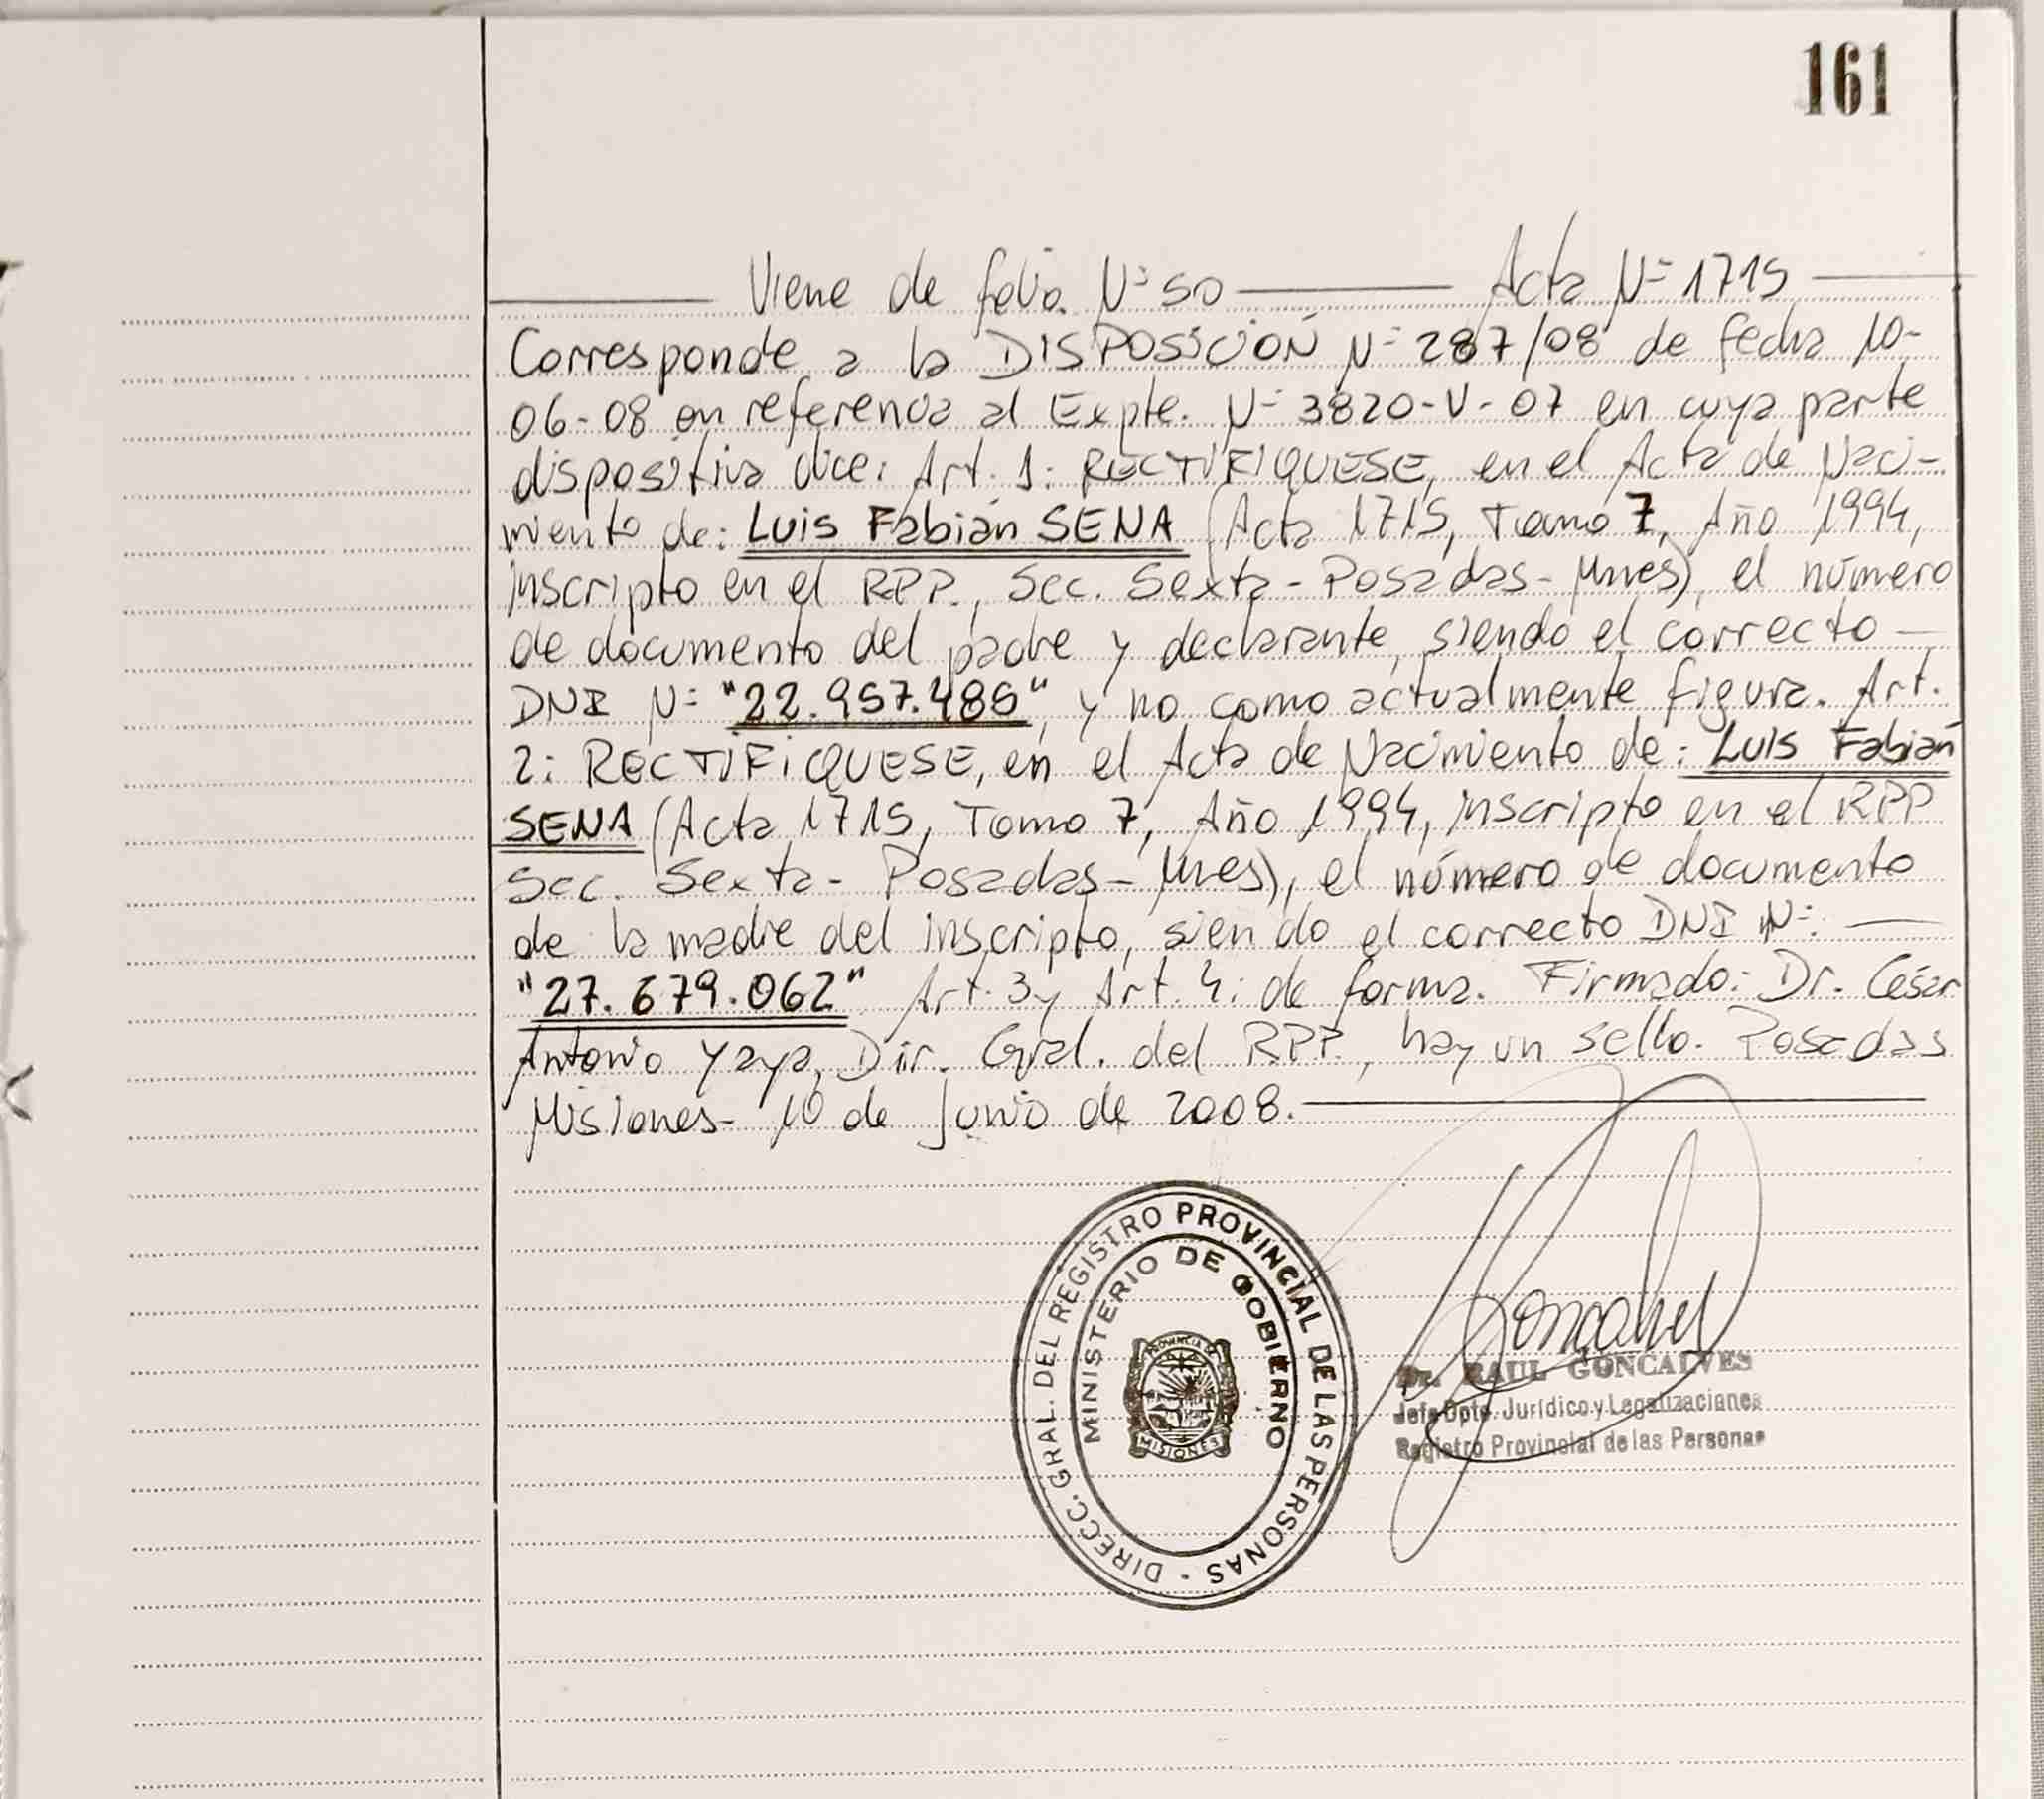 161
Viene de folio. Nº 50 Acta Nº 1715
Corresponde a la DISPOSICIÓN Nº 287/08 de fecha 10-
06-08 en referencia al Expte. Nº 3820-V-07 en cuya parte
dispositiva dice: Art. 1: RECTIFIQUESE, en el Acta de Naci-
miento de: Luis Fabián SENA (Acta 1715, Tomo 7, Año 1994,
inscripto en el RPP., Sec. Sexta-Posadas-Mnes), el número
de documento del padre y declarante, siendo el correcto
DNI Nº "22.957.485", y no como actualmente figura. Art.
2: RECTIFIQUESE, en el Acta de Nacimiento de: Luis Fabián
SENA (Acta 1715, Tomo 7, Año 1994, inscripto en el RPP
Sec. Sexta-Posadas-Mnes), el número de documento
de la madre del inscripto, siendo el correcto DNI Nº:
"27.679.062" Art. 3 y Art. 4: de forma. Firmado: Dr. César
Antonio Yaya, Dir. Gral. del RPP., hay un sello. Posadas
Misiones- 10 de Junio de 2008.
DIRECC. GRAL. DEL REGISTRO PROVINCIAL DE LAS PERSONAS -
MINISTERIO DE GOBIERNO
PROVINCIA DE
MISIONES
Dr. RAUL GONCALVES
Jefe Dpto. Jurídico y Legalizaciones
Registro Provincial de las Personas